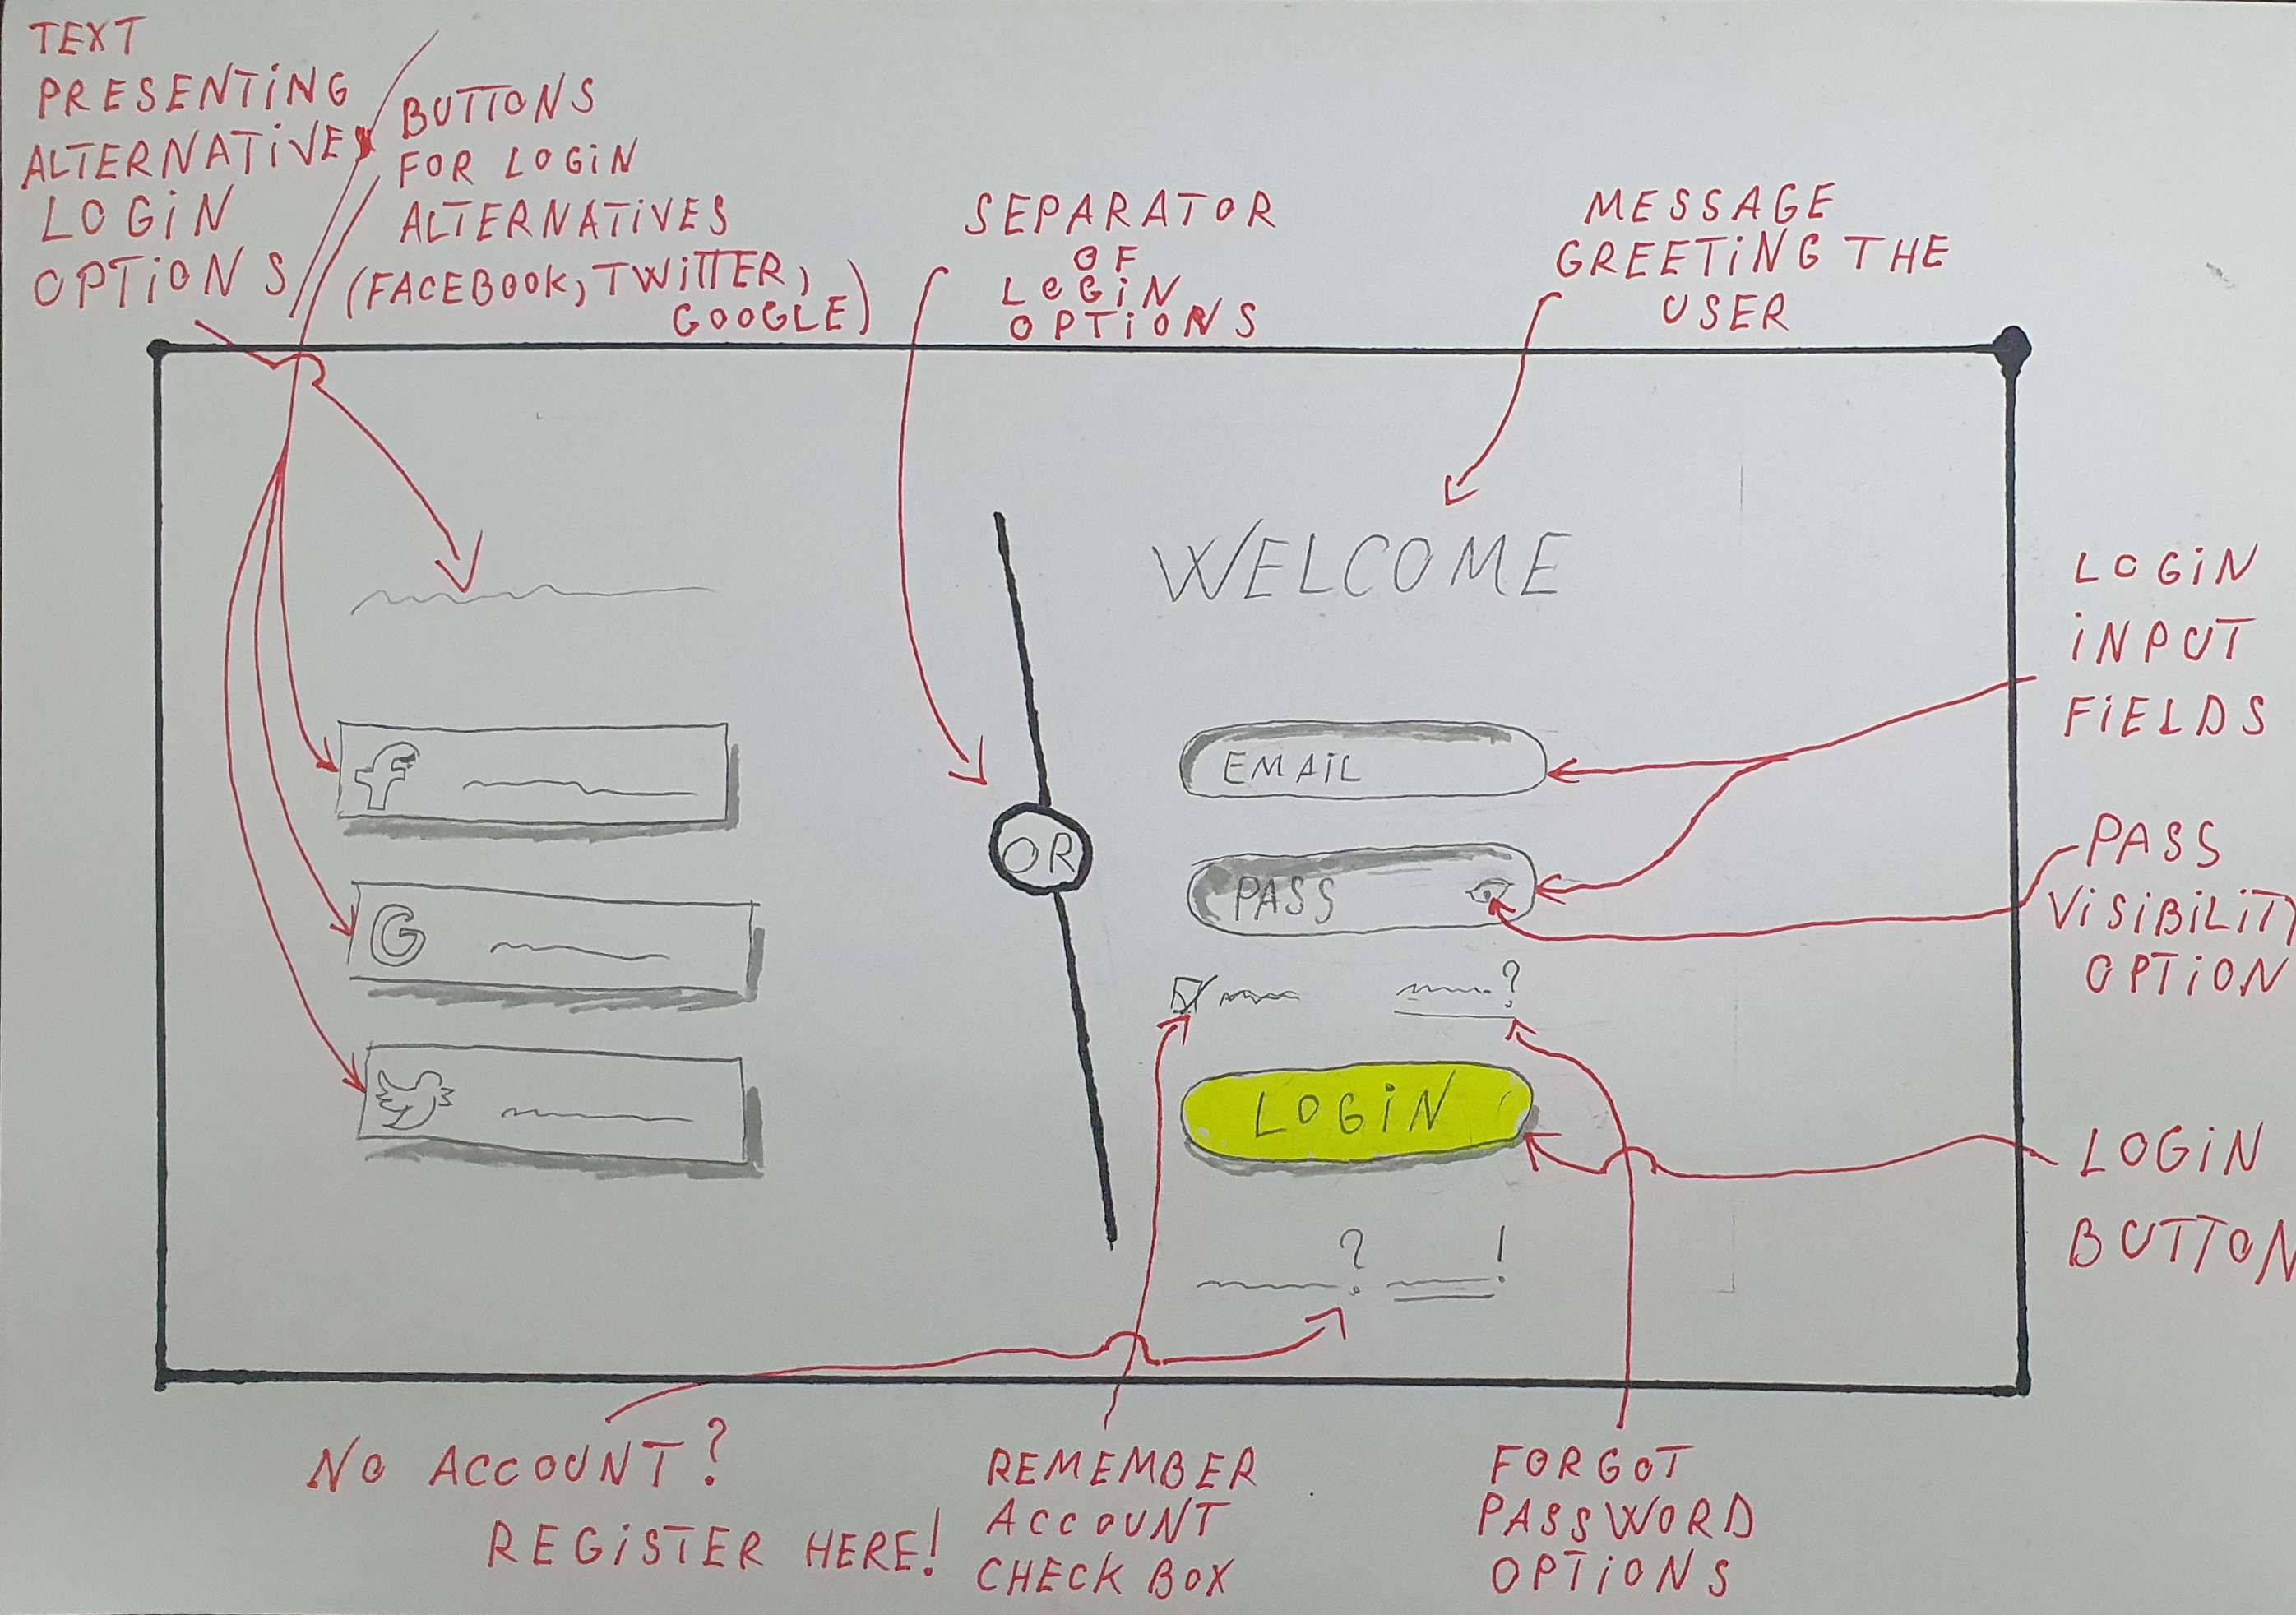 TEXT
PRESENTING
ALTERNATIVE
LOGIN
OPTIONS
BUTTONS
FOR LOGIN
ALTERNATIVES
(FACEBOOK, TWITTER,
GOOGLE)
SEPARATOR
OF
LOGIN
OPTIONS
MESSAGE
GREETING THE
USER
WELCOME
LOGIN
INPUT
FIELDS
f
EMAIL
OR
PASS
PASS
VISIBILITY
OPTION
G
?
LOGIN
LOGIN
BUTTON
? !
NO ACCOUNT?
REGISTER HERE!
REMEMBER
ACCOUNT
CHECK BOX
FORGOT
PASSWORD
OPTIONS